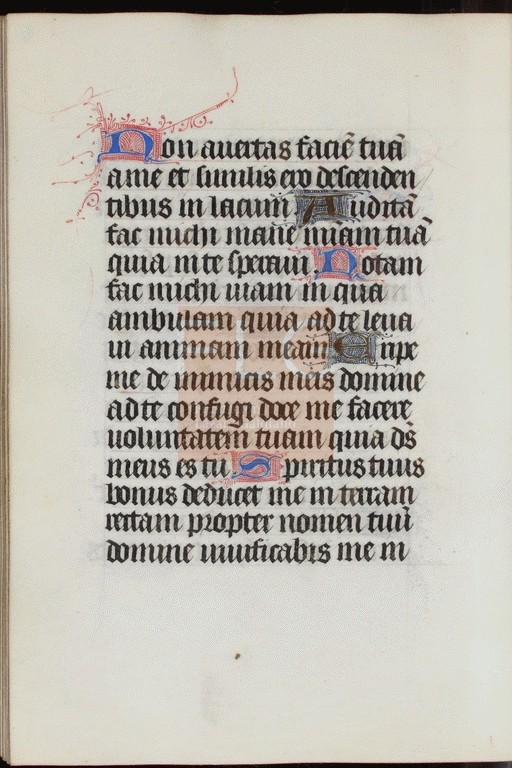 Non auertas faciē tuā
a me et similis ero descenden
tibus in lacum Auditā
fac michi mane miām tuā
quia in te speraui Notam
fac michi uiam in qua
ambulam quia ad te leua
ui animam meam Eripe
me de inimicis meis domine
ad te confugi doce me facere
uoluntatem tuam quia ds̄
meus es tu Spiritus tuus
bonus deducet me in terram
rectam propter nomen tuū
domine uiuificabis me in